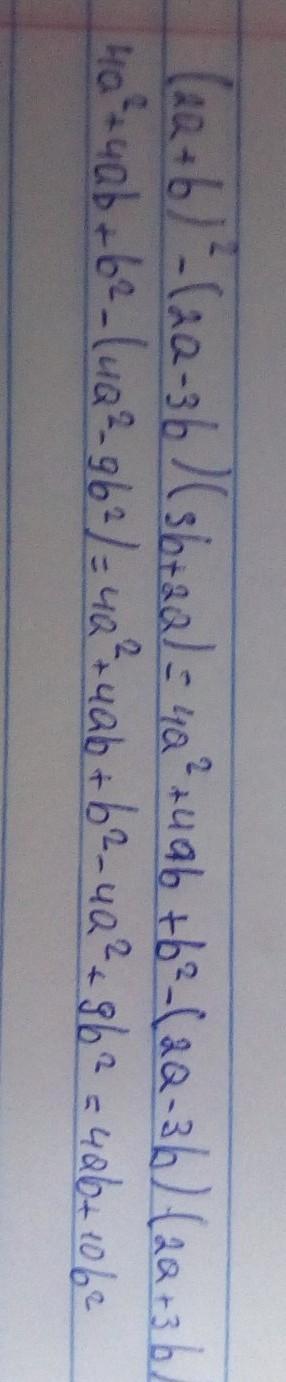 (2a+b)² - (2a-3b)(3b+2a) = 4a² + 4ab + b² - (2a-3b)·(2a+3b)
4a² + 4ab + b² - (4a² - 9b²) = 4a² + 4ab + b² - 4a² + 9b² = 4ab + 10b²